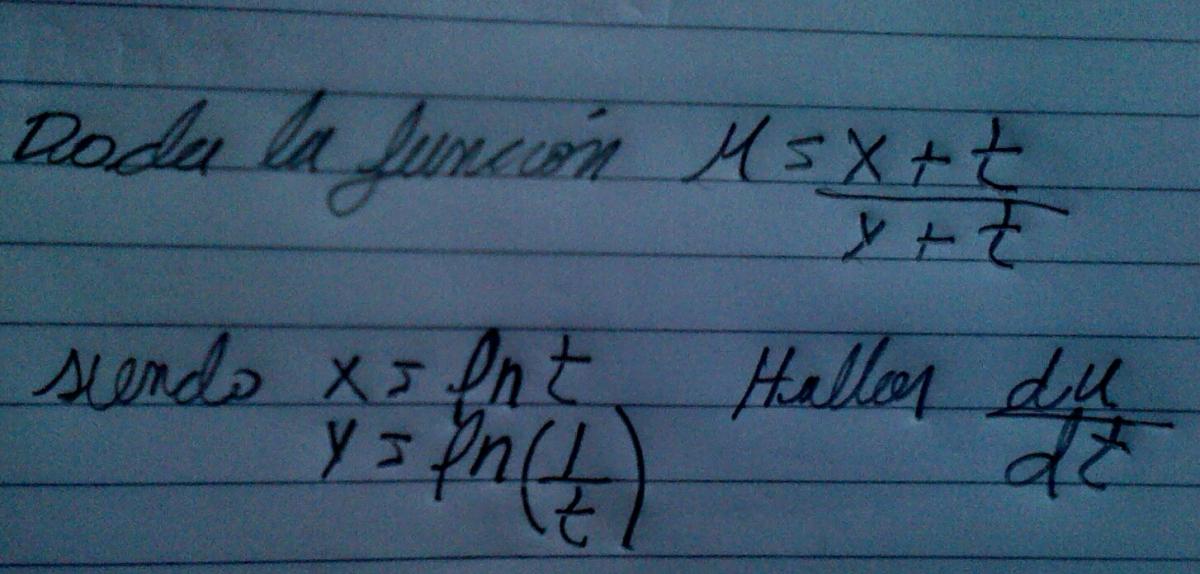 Dada la función u = x + t
y + t
siendo x = ln t Hallar du
dt
y = ln(1/t)